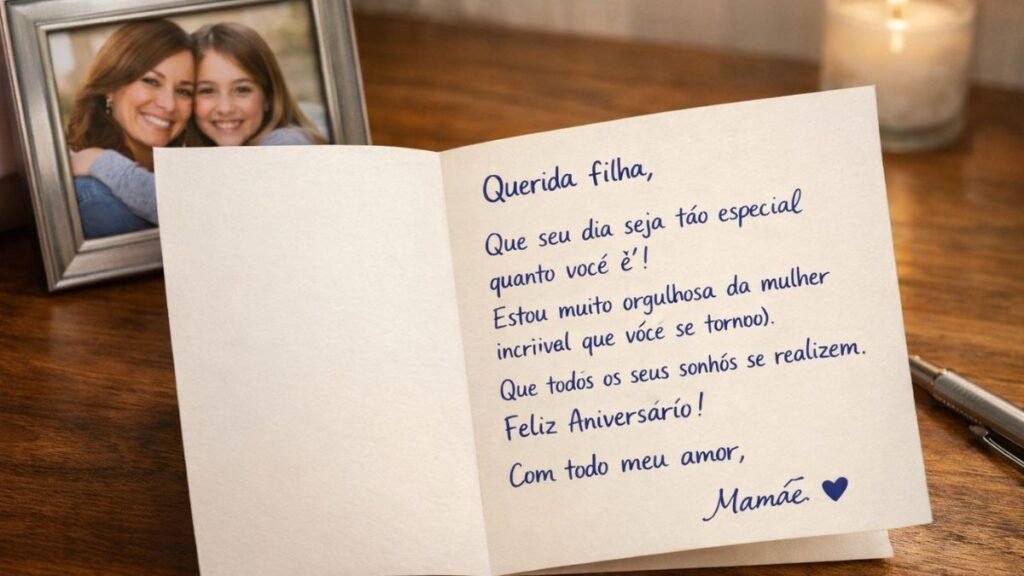 Querida filha,
Que seu dia seja táo especial
quanto você è’!
Estou muito orgulhosa da mulher
incriival que vóce se tornoo).
Que todós os seus sonhós se realizem.
Feliz Aniversárío!
Com todo meu amor,
Mamáe. ♥